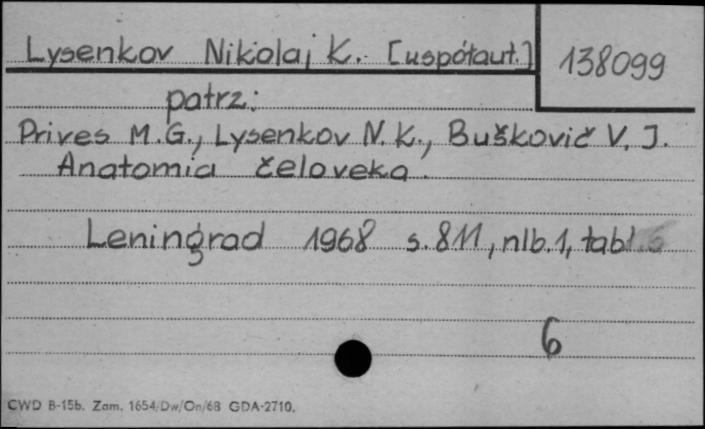 Lysenkov Nikolaj K. [uspótaut.] 138099
patrz:
Prives M.G., Lysenkov N.K., Buškovič V. J.
Anatomia čeloveka.
Leningrad 1968 s. 811, nlb. 1, tabl. 6
6
CWD B-15b. Zam. 1654/Dw/On/68 GDA-2710.